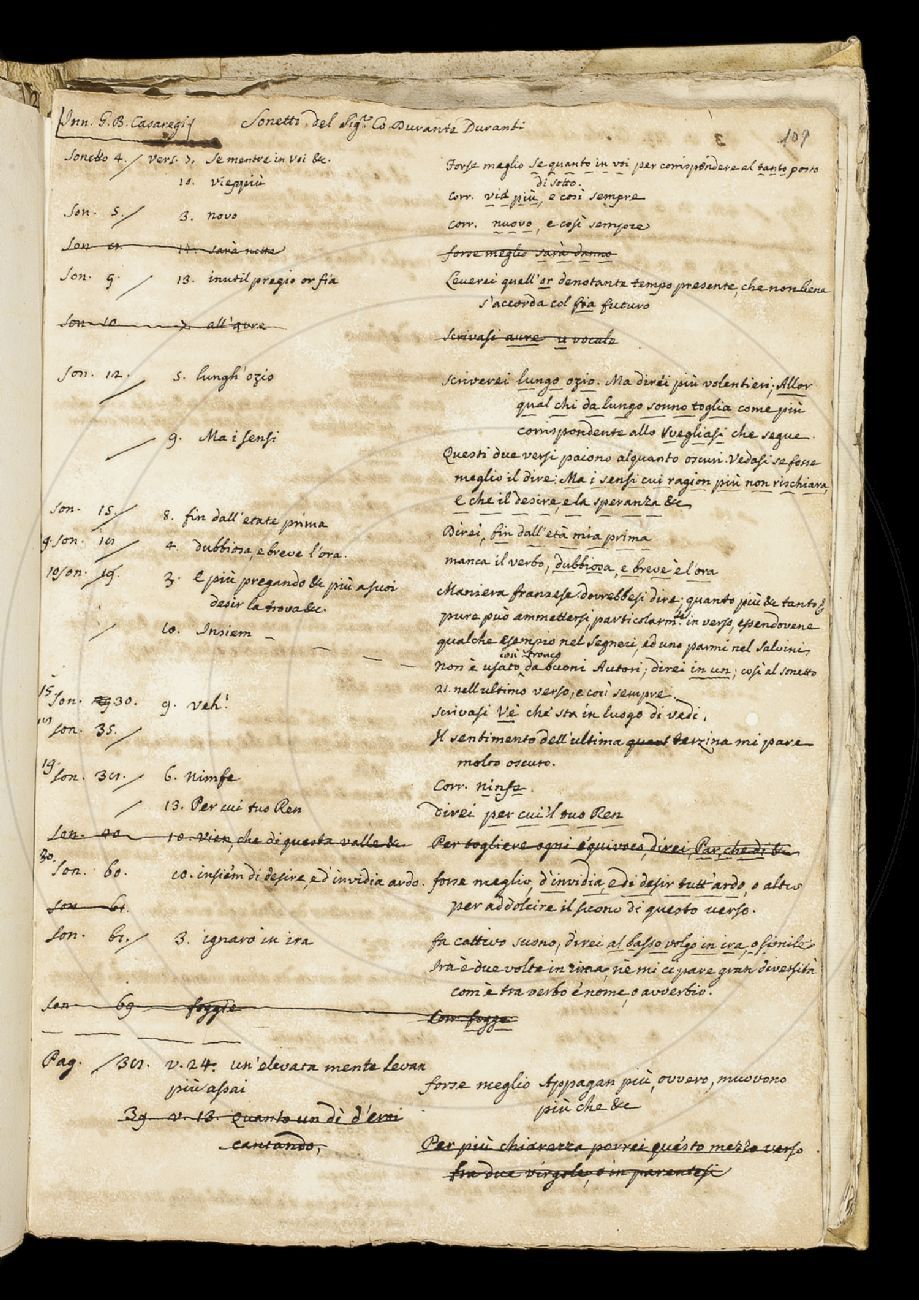 Inn. G. B. Casaregi Sonetti del Sig.r Co Durante Duranti 109
Sonetto 4. / vers. 7. Se mentre in voi &c. Forse meglio se quanto in voi per corrispondere al tanto posto
di sotto.
10. vieppiù Corr. vid più, e così sempre
Son. 5. / 3. novo Corr. nuovo, e così sempre
Son 6. 14. sarà notte forse meglio sarà danno
Son. 9. / 13. inutil pregio or fia Leverei quell'or denotante tempo presente, che non bene
s'accorda col fia futuro
Son 10 7. all'aure Scrivasi aure u vocale
Son. 12. / 5. lungh'ozio Scriverei lungo ozio. Ma direi più volentieri, Allor
qual chi da lungo sonno toglia come più
corrispondente allo svegliasi che segue.
/ 9. Ma i sensi Questi due versi paiono alquanto oscuri. Vedasi se fosse
meglio il dire: Ma i sensi cui ragion più non rischiara,
E che il desire, e la speranza &c
Son. 15. / 8. fin dall'etate prima Direi, fin dall'età mia prima
9. Son. 4. dubbiosa, e breve l'ora. manca il verbo, dubbiosa, e breve è l'ora
10 Son. 19. 3. E più pregando &c più a suoi Maniera franzese. dovrebbesi dire, quanto più &c tanto
desir la trova &c. pure può ammettersi, particolarm.te in verso, essendovene
/ 10. Insiem qualche esempio nel Segneri, ed uno parmi nel Salvini,
così tronco
Non è usato da buoni Autori, direi in un; così al sonetto
21. nell'ultimo verso, e così sempre.
15 Son. 30. 9. veh! Scrivasi Ve' che sta in luogo di vedi.
Son. 35. / Il sentimento dell'ultima terzina mi pare
molto oscuro.
19. Son. / 6. Nimfe Corr. ninfe.
/ 13. Per cui tuo Ren Direi per cui'l tuo Ren
Son. 10. Vien, che di questa valle &c Per togliere ogni equivoco, direi, Par, che di &c
30. Son. 60. 10. insiem di desire, ed invidia ardo. forse meglio, d'invidia, e di desir tutt'ardo, o altro
Son 61. per addolcire il suono di questo verso.
Son. 61. / 3. ignaro in ira fa cattivo suono, direi al basso volgo in ira, o simile
Ira è due volte in rima, nè mi ci pare gran diversità
com'è tra verbo e nome, o avverbio.
Son 69 foggie Corr. fogge
Pag. v. 24. un'elevata mente levan forse meglio Appagan più, ovvero, muovono
più assai più che &c
39 v. 13 Quanto un dì d'eroi Per più chiarezza porrei questo mezzo verso
cantando, fra due virgole, o in parentesi